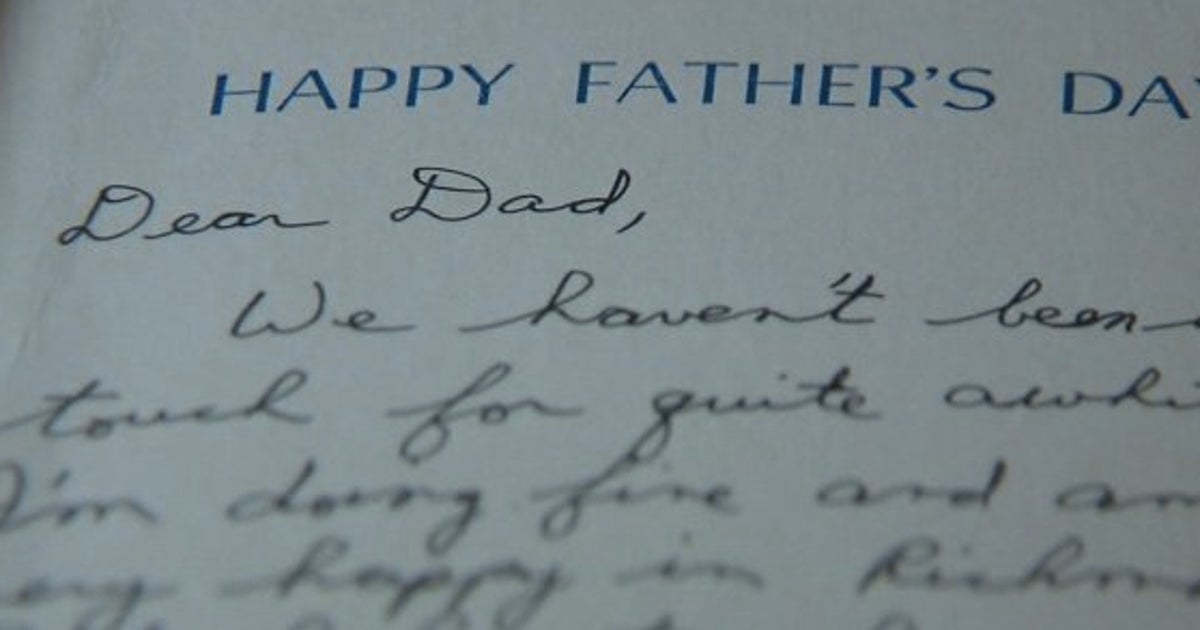 HAPPY FATHER'S DA
Dear Dad,
We haven't been
touch for quite awhi
I'm doing fine and am
ery happy in Richm